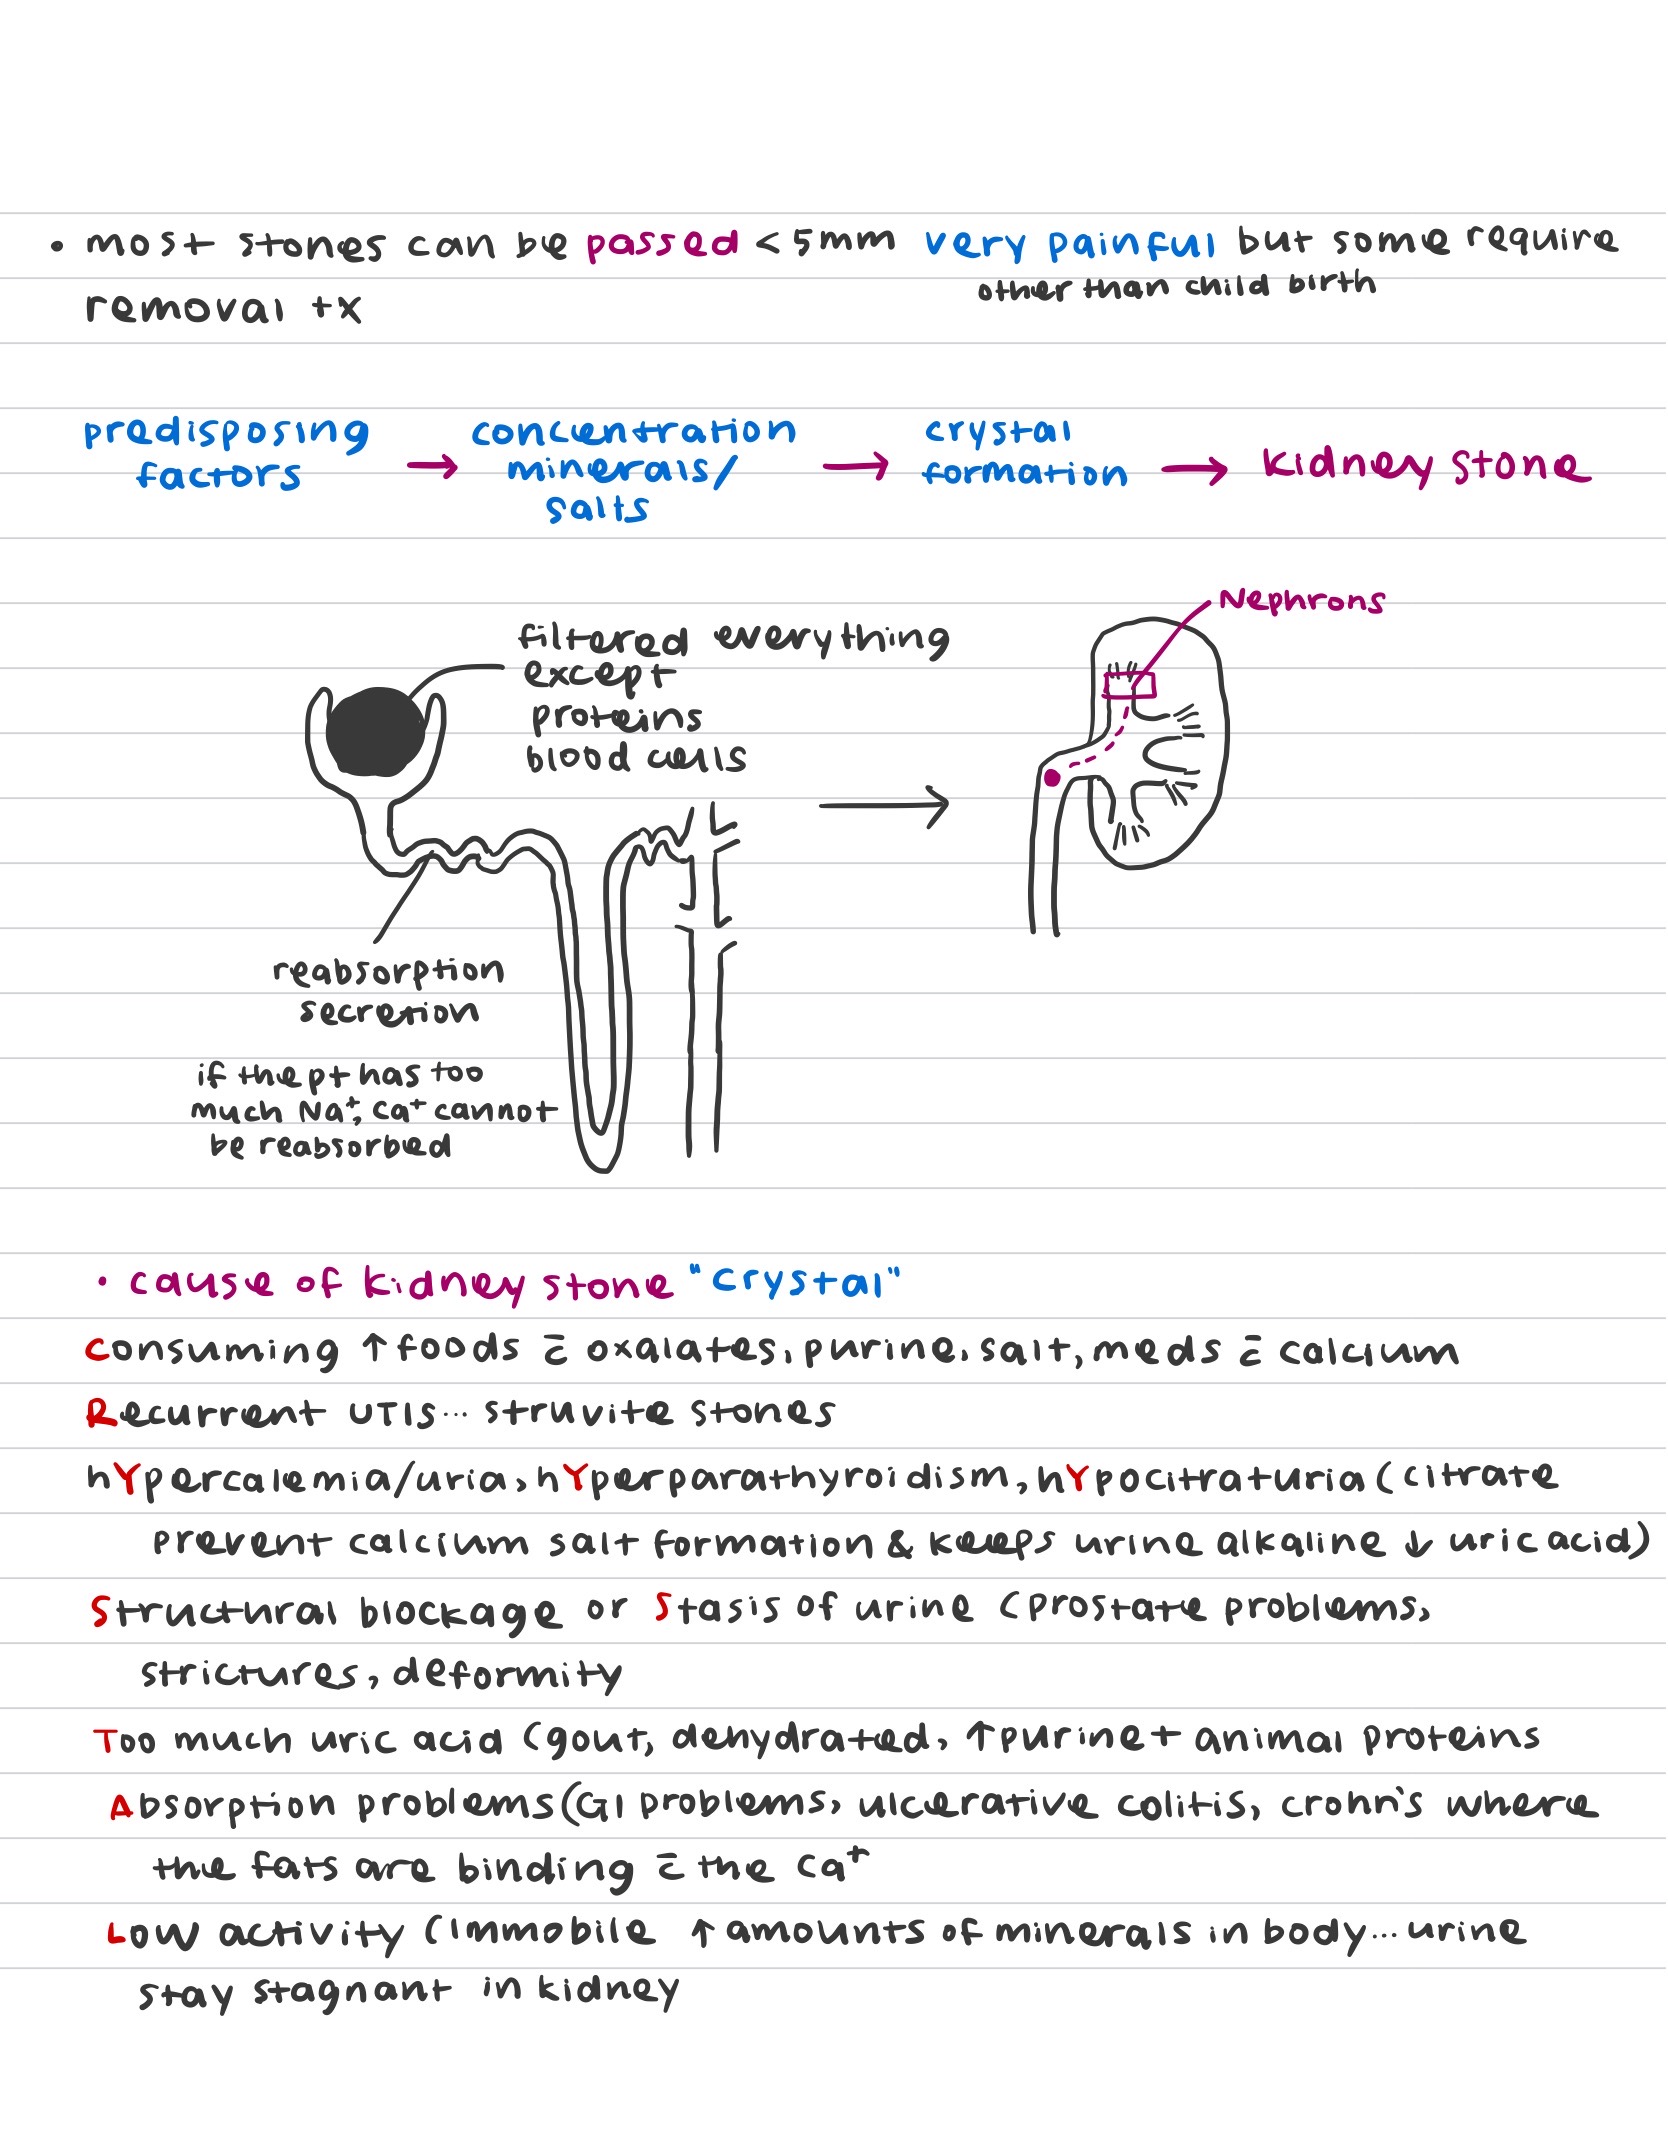 • most stones can be passed < 5mm very painful but some require
other than child birth
removal tx
predisposing factors → concentration minerals/ salts → crystal formation → kidney stone
Nephrons
filtered everything
except
proteins
blood cells
reabsorption
secretion
if the pt has too
much Na⁺, Ca⁺ cannot
be reabsorbed
• cause of kidney stone "crystal"
Consuming ↑ foods c̄ oxalates, purine, salt, meds c̄ calcium
Recurrent UTIs... struvite stones
hYpercalemia/uria, hYperparathyroidism, hYpocitraturia (citrate
prevent calcium salt formation & keeps urine alkaline ↓ uric acid)
Structural blockage or Stasis of urine (prostate problems,
strictures, deformity
Too much uric acid (gout, dehydrated, ↑ purine + animal proteins
Absorption problems (GI problems, ulcerative colitis, crohn's where
the fats are binding c̄ the Ca⁺
Low activity (Immobile ↑ amounts of minerals in body... urine
stay stagnant in kidney